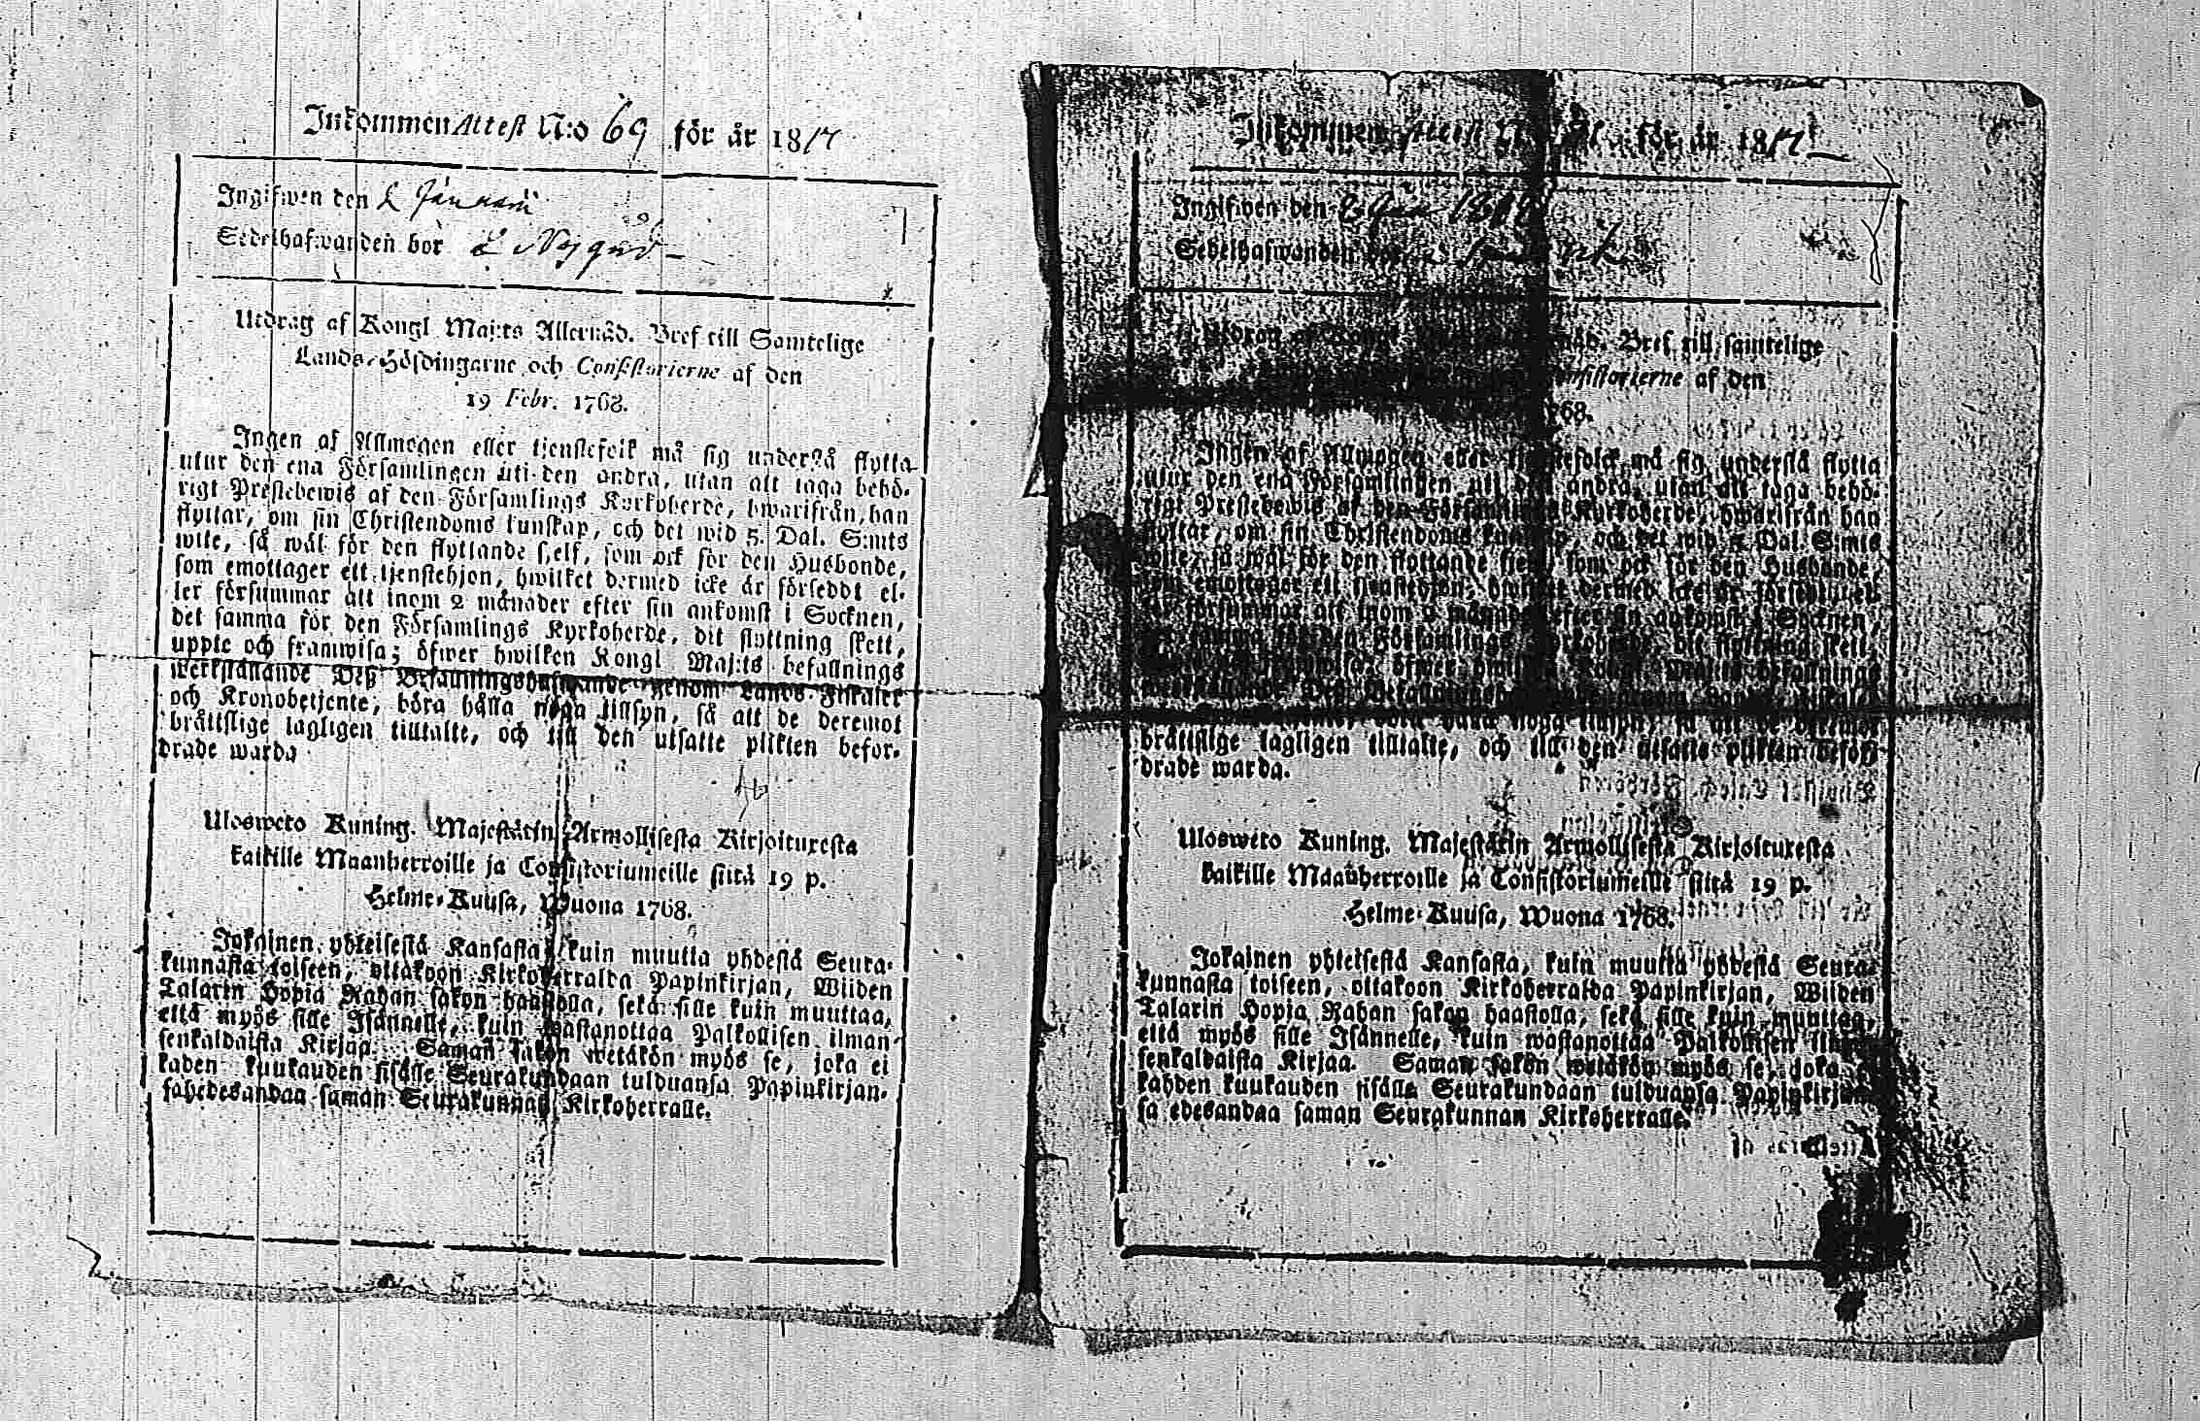 Inkommen Attest N:o 69 för år 1817
Ingifwen den 2 Januarii
Sedelhafwanden bor
Utdrag af Kongl Maj:ts Allernåd. Bref till Samtelige
Lands-Höfdingarne och Consistorierne af den
19 Febr. 1768.
Ingen af Allmogen eller tjenstefolk må sig understå flytta
utur den ena Församlingen uti den andra, utan att taga behö-
rigt Prestebewis af den Församlings Kyrkoherde, hwarifrån han
flyttar, om sin Christendoms kunskap, och det wid 5. Dal. S:mts
wite, så wäl för den flyttande sjelf, som ock för den Husbonde,
som emottager ett tjenstehjon, hwilket dermed icke är förseddt el-
ler försummar att inom 2 månader efter sin ankomst i Socknen,
det samma för den Församlings Kyrkoherde, dit flyttning skett,
uppte och framwisa; öfwer hwilken Kongl Maj:ts befallnings
werkställande Deß Befallningshafwande genom Lands-Fiskaler
och Kronobetjente, böra hålla noga tillsyn, så att de deremot
bråttslige lagligen tilltalte, och till den utsatte plikten befor-
drade warda
Ulosweto Kuning. Majestätin Armollisesta Kirjoituxesta
kaikille Maanherroille ja Consistoriumeille siitä 19 p.
Helme-Kuusa, Wuona 1768.
Jokainen yhteisestä Kansasta, kuin muutta yhdestä Seura-
kunnasta toiseen, ottakoon Kirkoherralda Papinkirjan, Wiiden
Talarin Hopia Rahan sakon haastolla, sekä sille kuin muuttaa,
että myös sille Isännelle, kuin wastanottaa Palkollisen ilman
senkaldaista Kirjaa. Saman sakon wetäkön myös se, joka ei
kaden kuukauden sisälle Seurakundaan tulduansa Papinkirjan-
sahedesandaa saman Seurakunnan Kirkoherralle.
Inkommen Attest för år 1817
Ingifwen den 2 Jan
Sedelhafwanden bor
Utdrag af Kongl Bref till samtelige
Consistorierne af den
1768.
Ingen af Allmogen eller tjenstefolck må sig understå flytta
utur den ena Församlingen uti den andra, utan att taga behö-
rigt Prestebewis af den Församlings Kyrkoherde, hwarifrån han
flyttar, om sin Christendoms kunskap, och det wid 5 Dal. S:mts
wite, så wäl för den flyttande sjelf, som ock för den Husbonde,
som emottager ett tjenstehjon, hwilket dermed icke är försedt el-
ler försummar att inom 2 månader efter sin ankomst i Socknen,
det samma för den Församlings Kyrkoherde, dit flyttning skett,
framwisa; öfwer hwilken Kongl Maj:ts befallnings
werkställande Deß
böra hålla noga tillsyn, så att de deremot
bråttslige lagligen tilltalte, och till den utsatte plikten befor-
drade warda.
Ulosweto Kuning. Majestätin Armollisesta Kirjoituxesta
kaikille Maanherroille ja Consistoriumeille siitä 19 p.
Helme-Kuusa, Wuona 1768.
Jokainen yhteisestä Kansasta, kuin muutta yhdestä Seura-
kunnasta toiseen, ottakoon Kirkoherralda Papinkirjan, Wiiden
Talarin Hopia Rahan sakon haastolla, sekä sille kuin muuttaa,
että myös sille Isännelle, kuin wastanottaa Palkollisen ilman
senkaldaista Kirjaa. Saman sakon wetäkön myös se, joka
kahden kuukauden sisälle Seurakundaan tulduansa Papinkirjan-
sa edesandaa saman Seurakunnan Kirkoherralle.